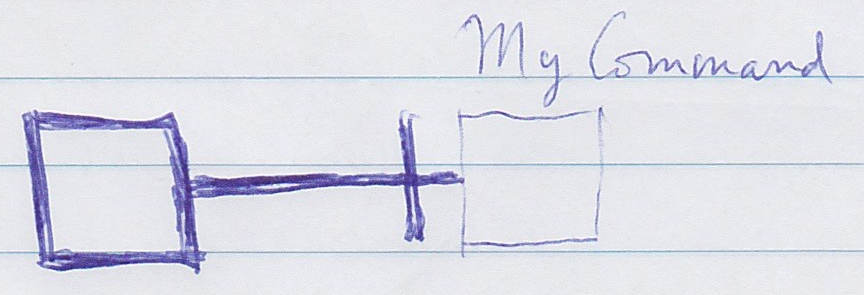 My Command